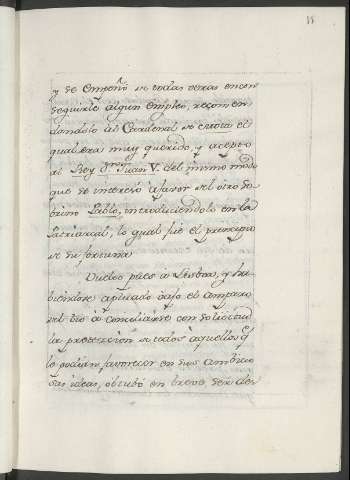 y se empeñó de todas veras en con
seguirle algun empleo, recomen
dandolo al Cardenal de
qual era muy querido, y acepto
al Rey Dn Juan V. del mismo modo
que se interesó a favor del otro so
brino Pablo, introduciendolo en la
Patriarcal, lo qual fué el principio
de su fortuna
Vuelto pues a Lisboa, y ha
viendose aplicado bajo el amparo
del tio à conciliarse con solicitud
la proteccion de todos aquellos q.e
lo podian favorecer en sus ambicio
sas ideas, obtubo en breve ser de